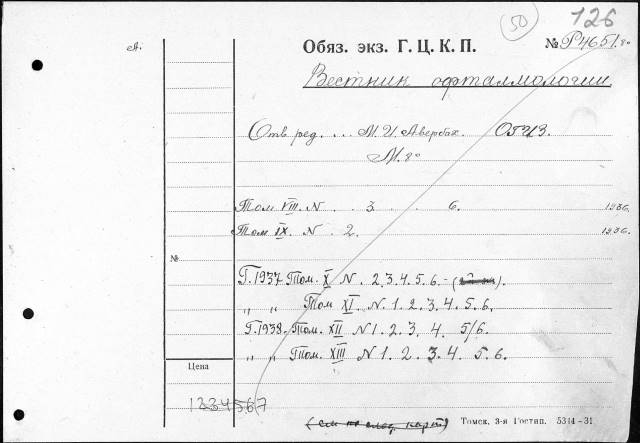 50
126
А.
Обяз. экз. Г. Ц. К. П.
№ Р4651.80
Вестник офталмологии.
Отв. ред. ... М. И. Авербах. ОГИЗ.
М. 8°
Том VIII. N . 3 . . 6. 1936.
Том IX. N . 2. 1936.
№
Г. 1937 Том. X N . 2. 3. 4. 5. 6. - ( ).
" " Том XI. N. 1. 2. 3. 4. 5. 6.
Г. 1938. Том. XII N 1. 2. 3. 4. 5/6.
" " Том. XIII N 1. 2. 3. 4. 5. 6.
Цена
1234567
(см на след. карт)
Томск, 3-я Гостип. 5344-31